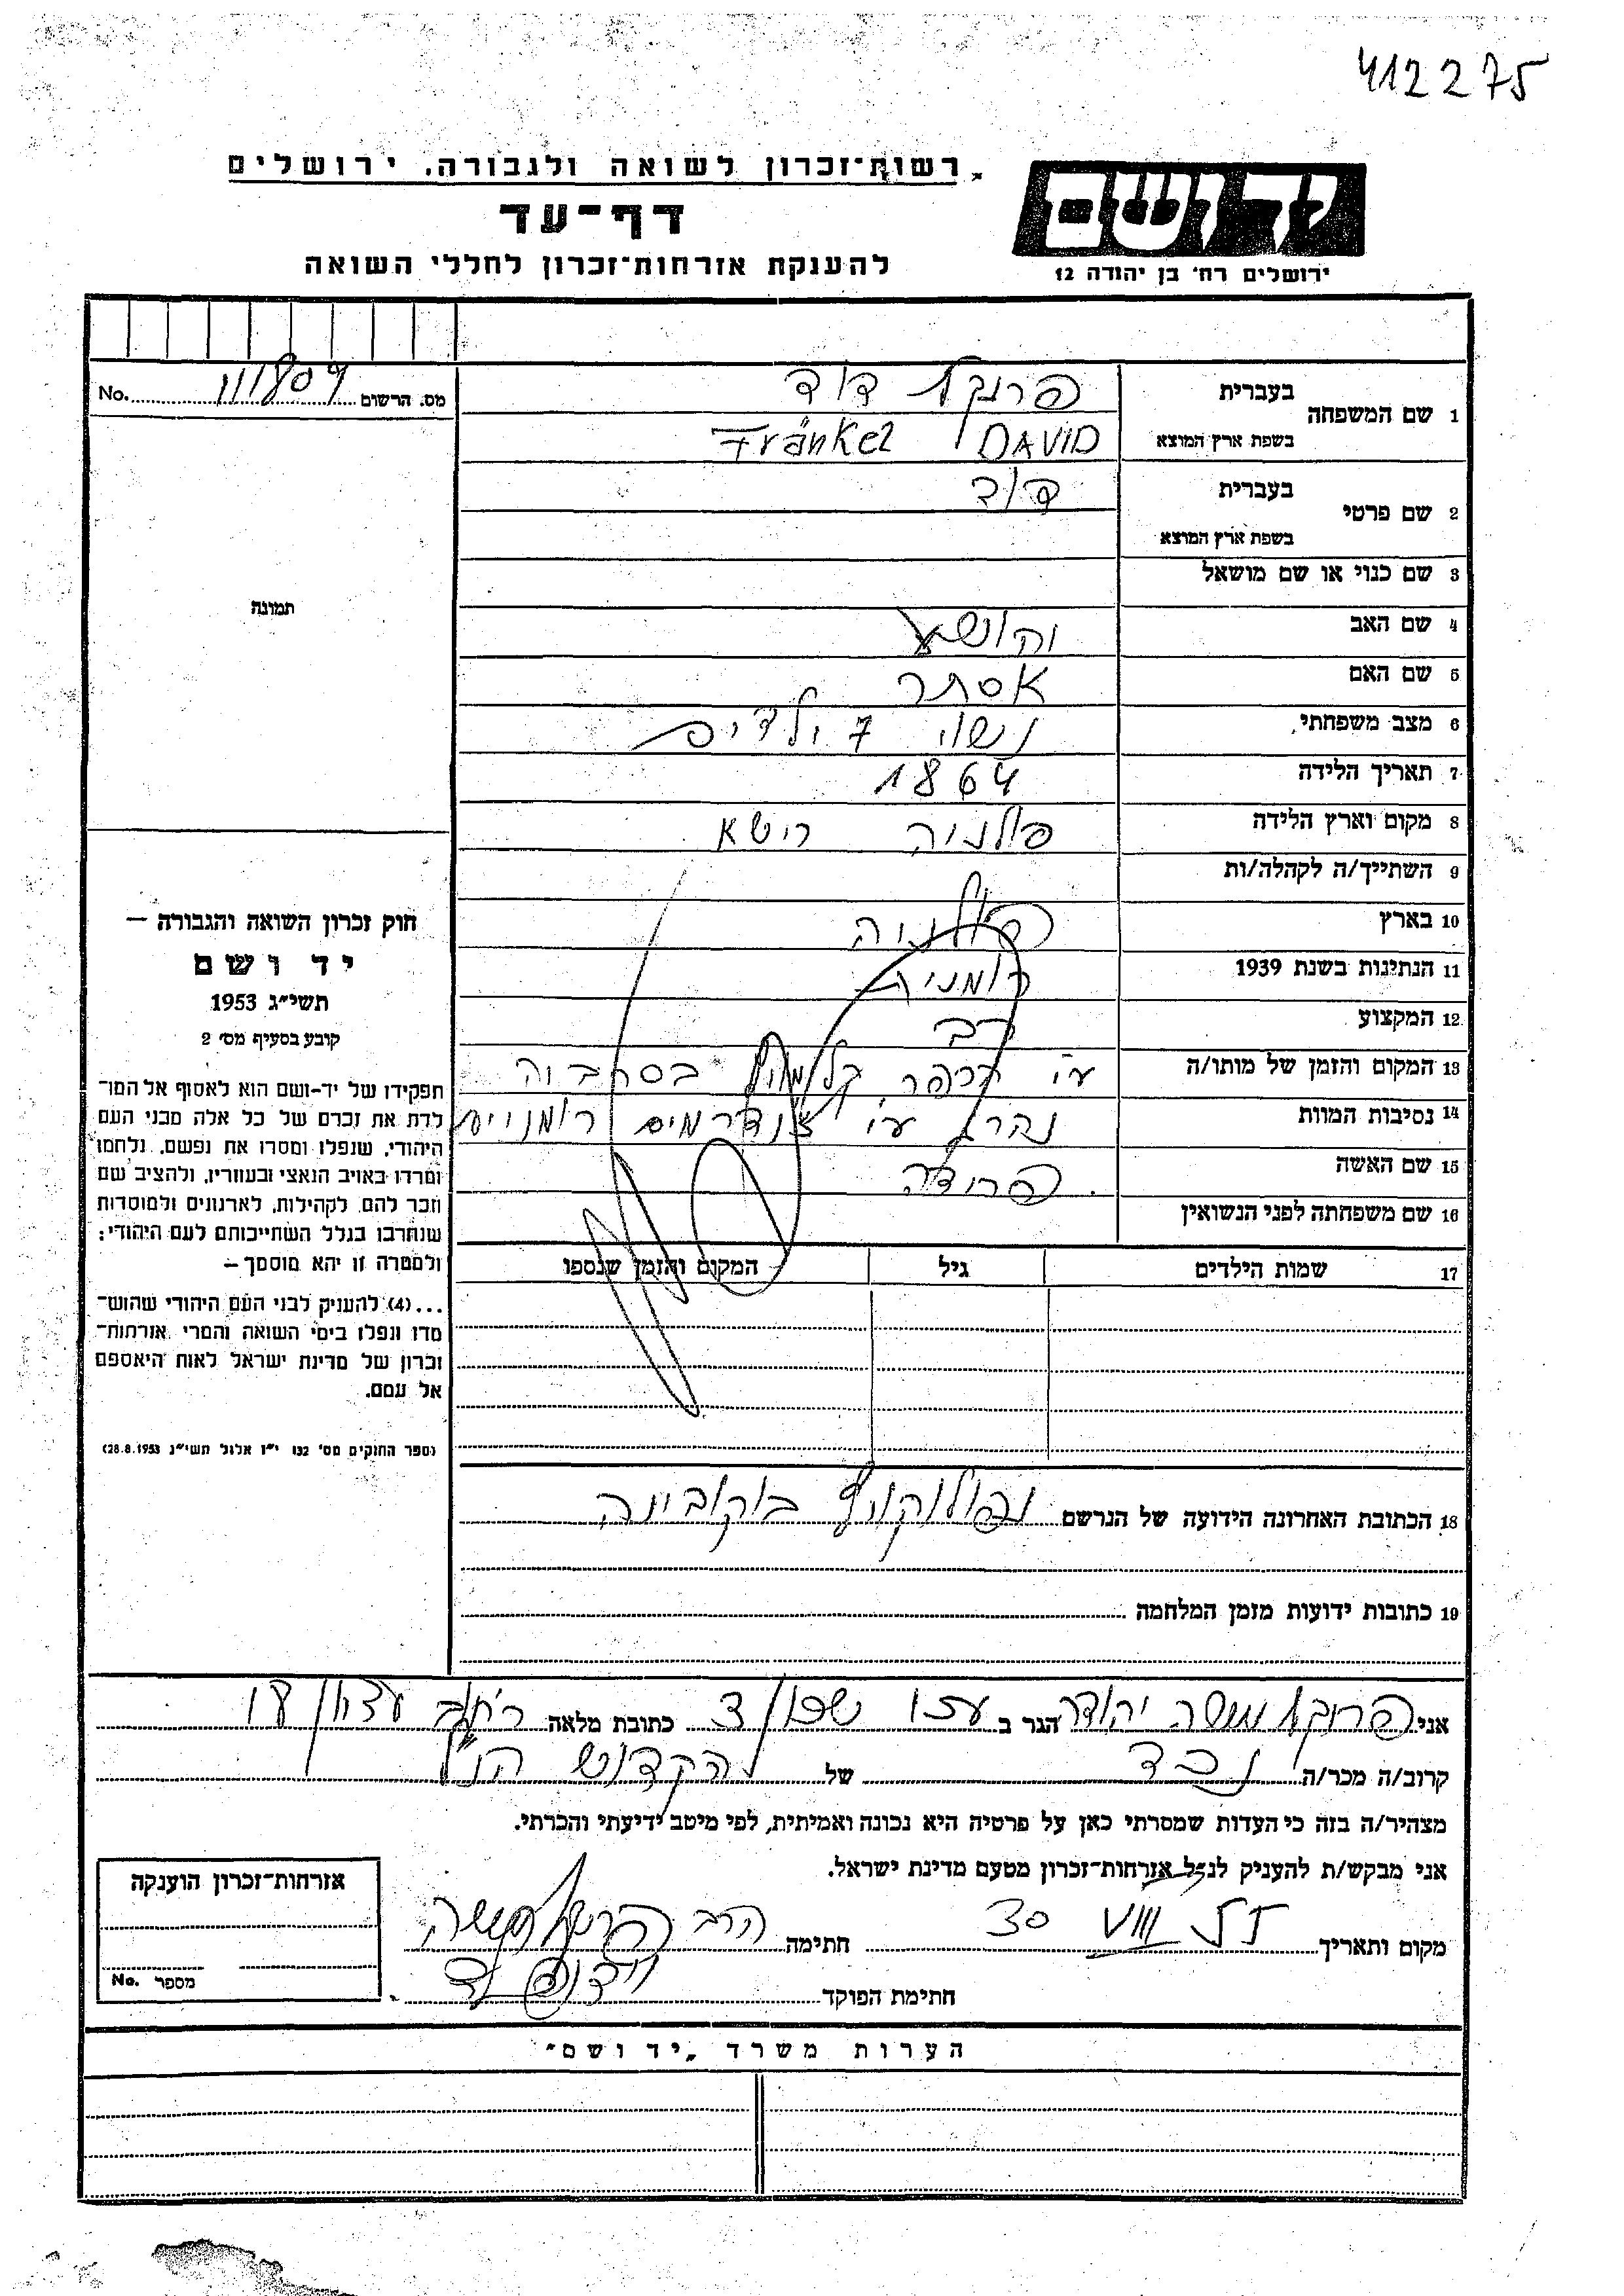 412275
רשות־זכרון לשואה ולגבורה, ירושלים
דף־עד
להענקת אזרחות־זכרון לחללי השואה
יד ושם
ירושלים רח' בן יהודה 12
מס. הרשום 111809 No.
1 שם המשפחה
בעברית פרנקל דוד
בשפת ארץ המוצא Fránkel DAVID
2 שם פרטי
בעברית דוד
בשפת ארץ המוצא
3 שם כנוי או שם מושאל
4 שם האב יהושע
5 שם האם אסתר
6 מצב משפחתי נשוי 7 ילדים
7 תאריך הלידה 1864
8 מקום וארץ הלידה פולניה רישא
9 השתייך/ה לקהלה/ות
10 בארץ פולניה
11 הנתינות בשנת 1939 רומנית
12 המקצוע רב
13 המקום והזמן של מותו/ה ע"י הכפר
14 נסיבות המוות נהרג ע"י צנדרמים רומניים
15 שם האשה פרידה
16 שם משפחתה לפני הנשואין
17 שמות הילדים גיל המקום והזמן שנספו
18 הכתובת האחרונה הידועה של הנרשם בוקובינה
19 כתובות ידועות מזמן המלחמה
תמונה
חוק זכרון השואה והגבורה —
יד ושם
תשי״ג 1953
קובע בסעיף מס׳ 2
תפקידו של יד-ושם הוא לאסוף אל המו־
לדת את זכרם של כל אלה מבני העם
היהודי, שנפלו ומסרו את נפשם, נלחמו
ומרדו באויב הנאצי ובעוזריו, ולהציב שם
וזכר להם, לקהילות, לארגונים ולמוסדות
שנחרבו בגלל השתייכותם לעם היהודי;
ולמטרה זו יהא מוסמך —
...(4) להעניק לבני העם היהודי שהוש־
מדו ונפלו בימי השואה והמרי אזרחות־
זכרון של מדינת ישראל לאות היאספם
אל עמם.
(ספר החוקים מס׳ 132 י״ז אלול תשי״ג 28.8.1953)
אני פרנקל משה יהודה הגר ב כתובת מלאה
קרוב/ה מכר/ה נכד של הקדוש הנ"ל
מצהיר/ה בזה כי העדות שמסרתי כאן על פרטיה היא נכונה ואמיתית, לפי מיטב ידיעתי והכרתי.
אני מבקש/ת להעניק לנ״ל אזרחות־זכרון מטעם מדינת ישראל.
מקום ותאריך 30 VIII 57 חתימה הרב פרנקל משה
חתימת הפוקד
אזרחות־זכרון הוענקה
מספר No.
הערות משרד „יד ושם״